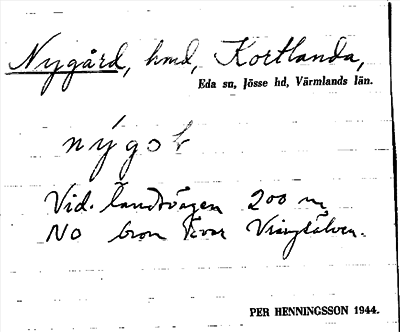 Nygård, hmd, Kortlanda,
Eda sn, Jösse hd, Värmlands län.
nýgoḷ
Vid landsvägen 200 m
NO bron över Vrångsälven.
PER HENNINGSSON 1944.